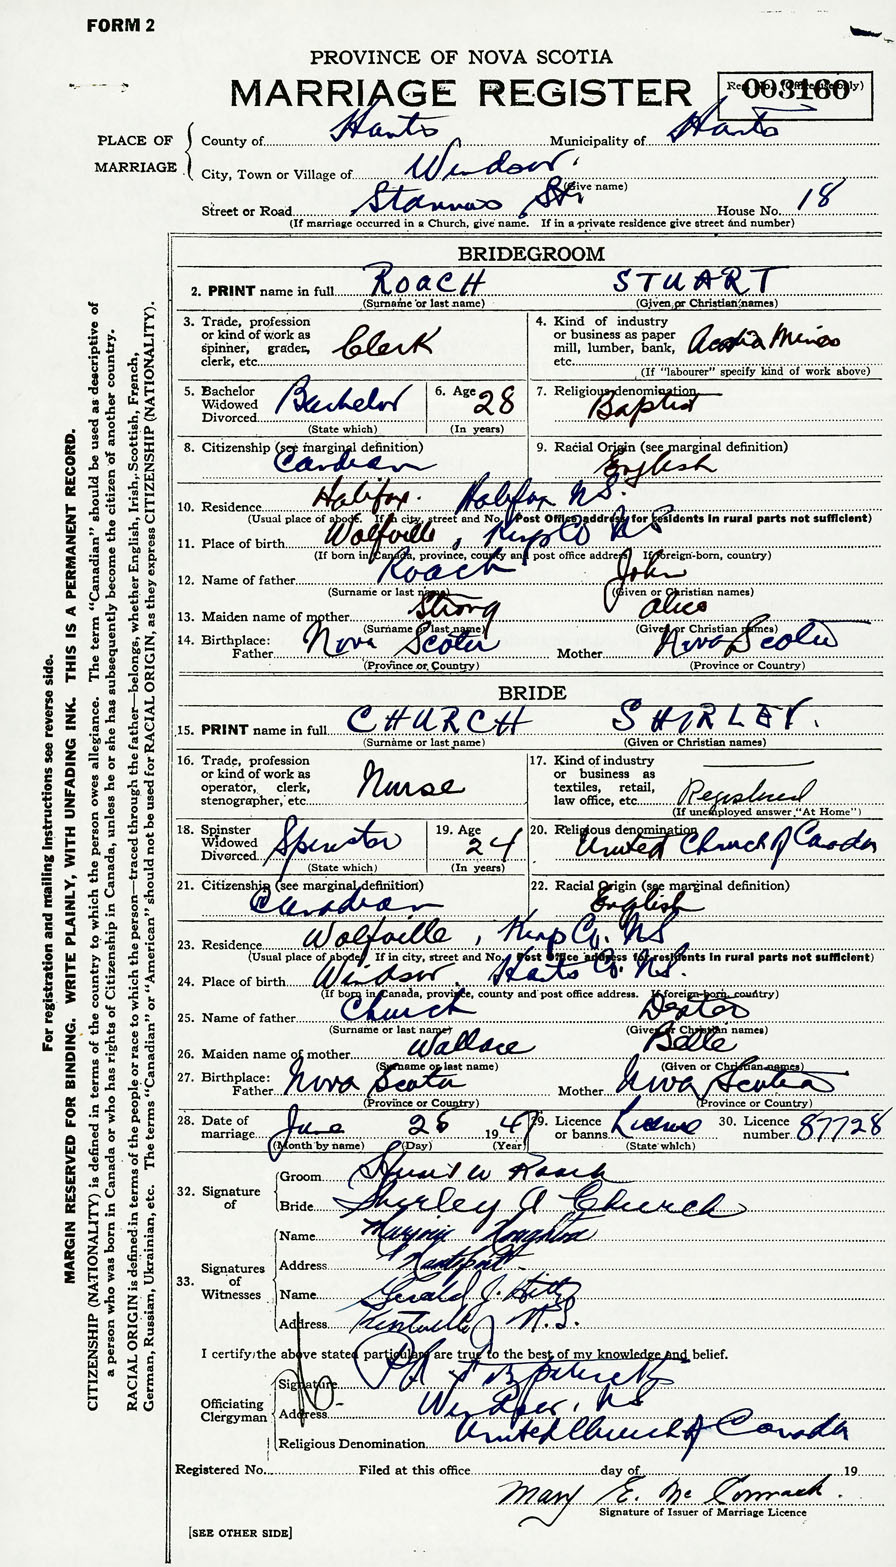 FORM 2
PROVINCE OF NOVA SCOTIA
MARRIAGE REGISTER
Reg. No. (Office use only) 003160
PLACE OF MARRIAGE
County of Hants Municipality of Hants
City, Town or Village of Windsor.
(Give name)
Street or Road Stannus St. House No. 18
(If marriage occurred in a Church, give name. If in a private residence give street and number)
BRIDEGROOM
2. PRINT name in full ROACH STUART
(Surname or last name) (Given or Christian names)
3. Trade, profession or kind of work as spinner, grader, clerk, etc. Clerk
4. Kind of industry or business as paper mill, lumber, bank, etc. Acadia Mines
(If "labourer" specify kind of work above)
5. Bachelor Widowed Divorced Bachelor
(State which)
6. Age 28
(In years)
7. Religious denomination Baptist
8. Citizenship (see marginal definition) Candian
9. Racial Origin (see marginal definition) English
10. Residence Halifax. Halifax N.S.
(Usual place of abode. If in city, street and No. Post Office address for residents in rural parts not sufficient)
11. Place of birth Wolfville, Kings Co NS
(If born in Canada, province, county and post office address. If foreign-born, country)
12. Name of father Roach John
(Surname or last name) (Given or Christian names)
13. Maiden name of mother Strong Alice
(Surname or last name) (Given or Christian names)
14. Birthplace: Father Nova Scotia Mother Nova Scotia
(Province or Country) (Province or Country)
BRIDE
15. PRINT name in full CHURCH SHIRLEY.
(Surname or last name) (Given or Christian names)
16. Trade, profession or kind of work as operator, clerk, stenographer, etc. Nurse
17. Kind of industry or business as textiles, retail, law office, etc. Registered
(If unemployed answer "At Home")
18. Spinster Widowed Divorced Spinster
(State which)
19. Age 24
(In years)
20. Religious denomination United Church of Canada
21. Citizenship (see marginal definition) Canadian
22. Racial Origin (see marginal definition) English
23. Residence Wolfville, Kings Co. NS
(Usual place of abode. If in city, street and No. Post Office address for residents in rural parts not sufficient)
24. Place of birth Windsor. Hants Co. N.S.
(If born in Canada, province, county and post office address. If foreign-born, country)
25. Name of father Church Dexter
(Surname or last name) (Given or Christian names)
26. Maiden name of mother Wallace Belle
(Surname or last name) (Given or Christian names)
27. Birthplace: Father Nova Scotia Mother Nova Scotia
(Province or Country) (Province or Country)
28. Date of marriage June 26 1947
(Month by name) (Day) (Year)
29. Licence or banns License
(State which)
30. Licence number 87728
32. Signature of
Groom Stuart W Roach
Bride Shirley A Church
33. Signatures of Witnesses
Name Marjorie
Address Hantsport
Name Gerald J.
Address Kentville N.S.
I certify the above stated particulars are true to the best of my knowledge and belief.
Officiating Clergyman
Signature
Address Windsor, NS
Religious Denomination United Church of Canada
Registered No. Filed at this office day of 19
Mary E. McCormack.
Signature of Issuer of Marriage Licence
[SEE OTHER SIDE]
For registration and mailing instructions see reverse side.
MARGIN RESERVED FOR BINDING. WRITE PLAINLY, WITH UNFADING INK. THIS IS A PERMANENT RECORD.
CITIZENSHIP (NATIONALITY) is defined in terms of the country to which the person owes allegiance. The term "Canadian" should be used as descriptive of
a person who was born in Canada or who has rights of Citizenship in Canada, unless he or she has subsequently become the citizen of another country.
RACIAL ORIGIN is defined in terms of the people or race to which the person—traced through the father—belongs, whether English, Irish, Scottish, French,
German, Russian, Ukrainian, etc. The terms "Canadian" or "American" should not be used for RACIAL ORIGIN, as they express CITIZENSHIP (NATIONALITY).